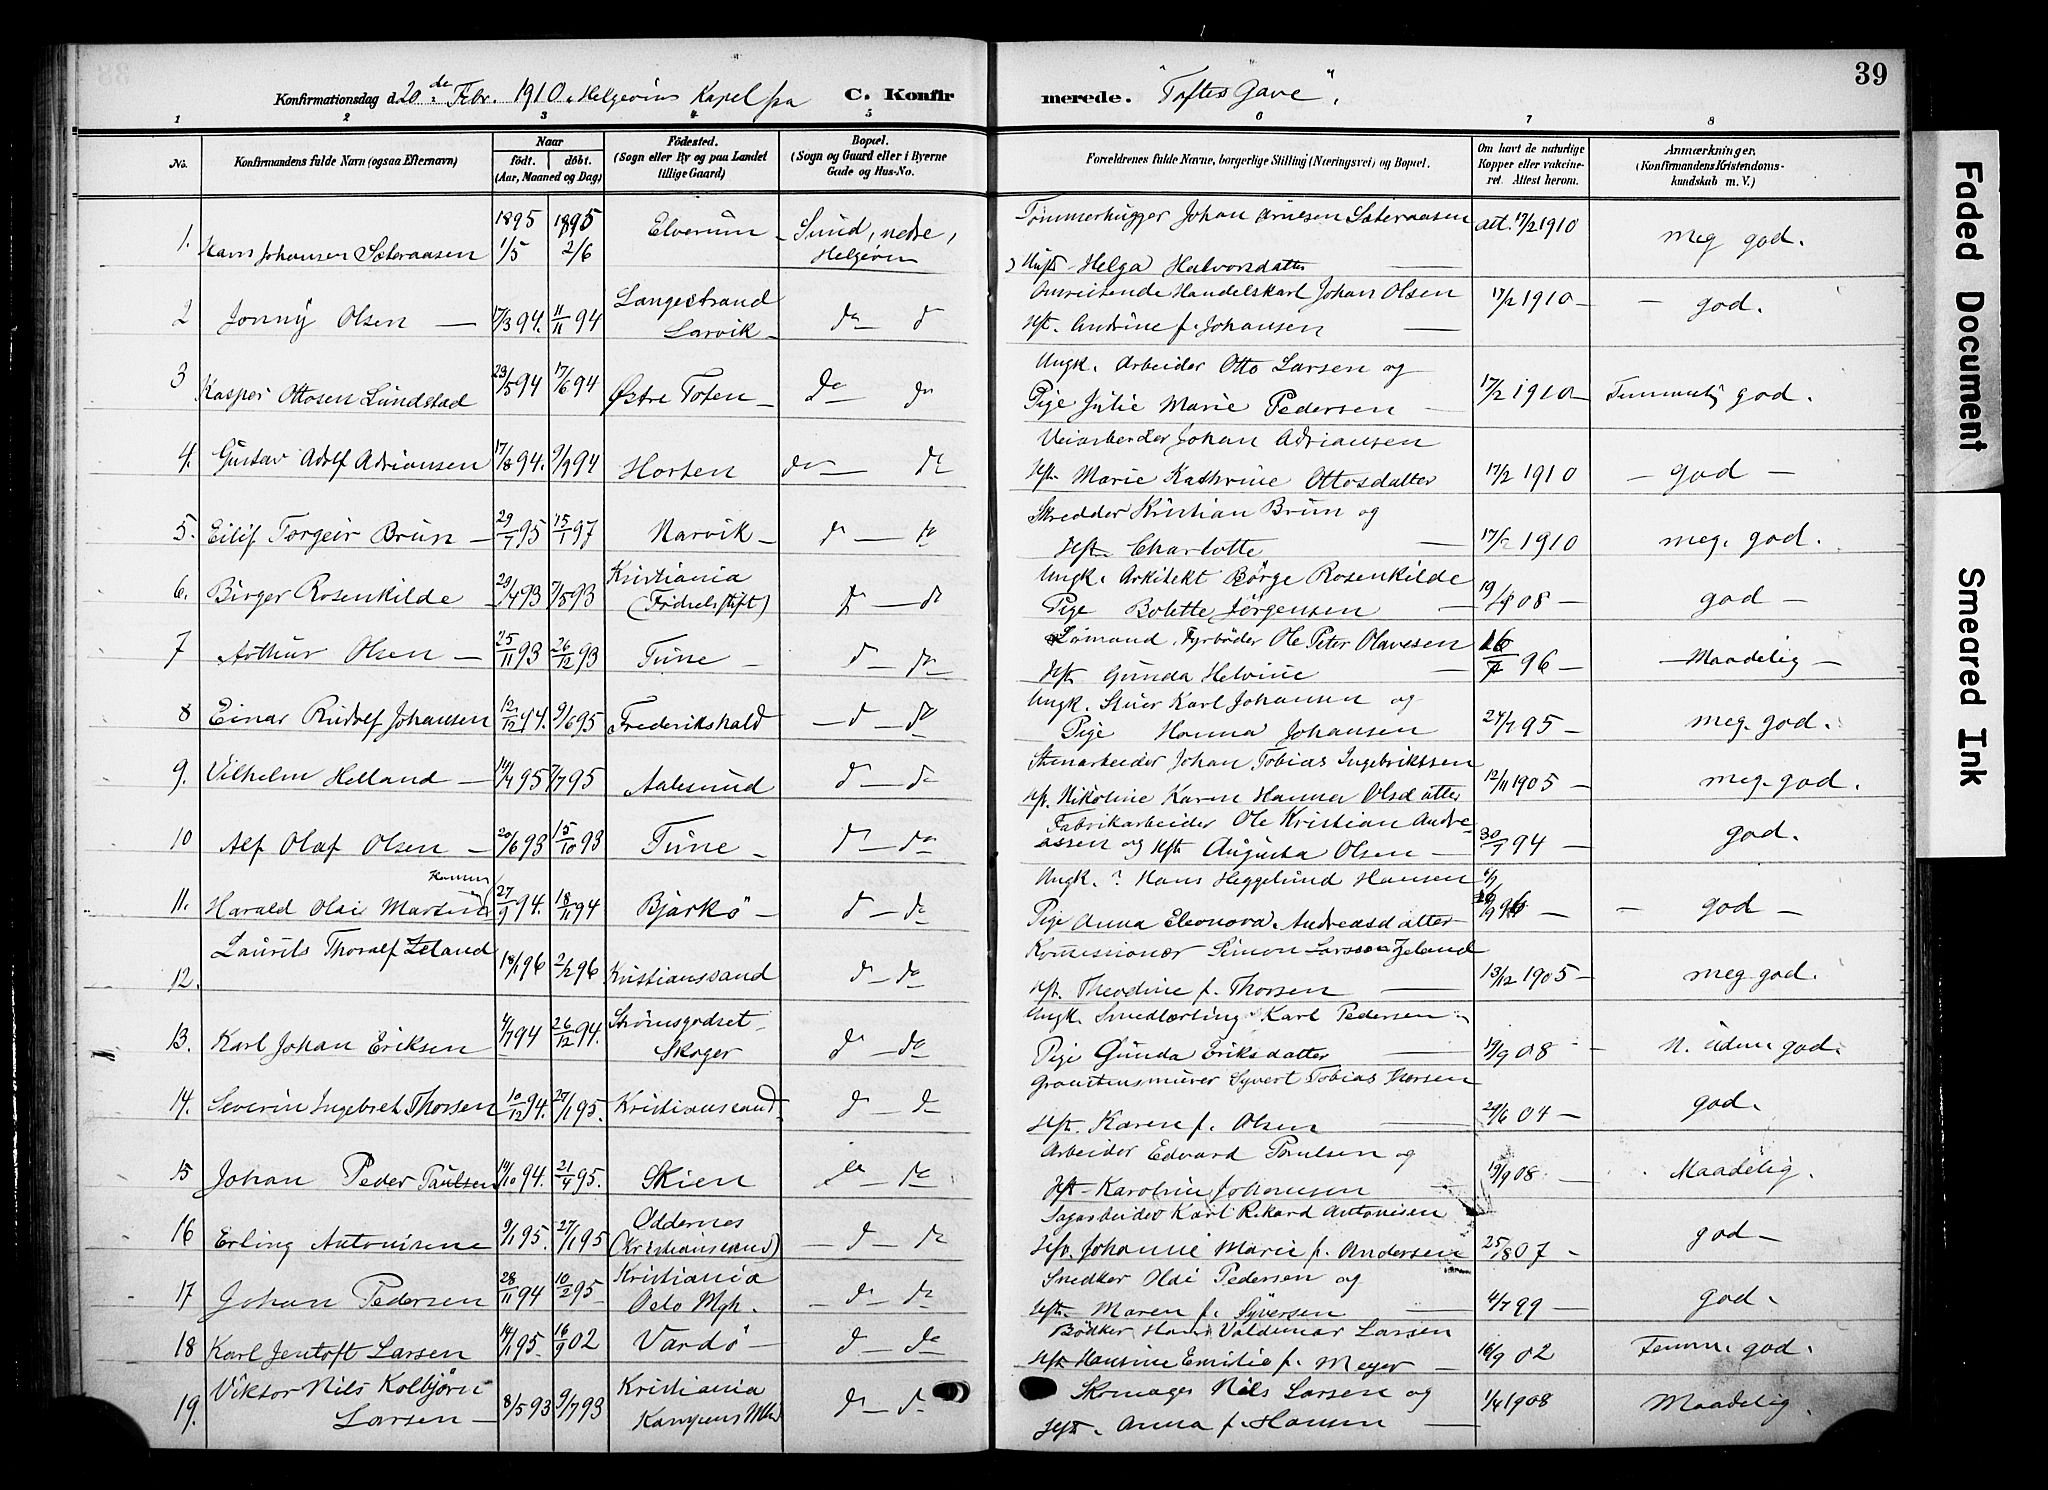 39
Konfirmationsdag d. 20de Febr. 1910 i Helgeøens Kapel fra C. Konfirmerede. "Toftes Gave".
1 2 3 4 5 6 7 8
No.
Konfirmandens fulde Navn (ogsaa Efternavn)
Naar
født. døbt.
(Aar, Maaned og Dag)
Fødested.
(Sogn eller By og paa Landet
tillige Gaard)
Bopæl.
(Sogn og Gaard eller i Byerne
Gade og Hus-No.
Forældrenes fulde Navne, borgerlige Stilling (Næringsvei) og Bopæl.
Om havt de naturlige
Kopper eller vakcine-
ret. Attest herom.
Anmærkninger.
(Konfirmandens Kristendoms-
kundskab m. V.)
1. Hans Johansen Sæteraasen 1895 1/5 1895 2/6 Elverum - Sund, nedre, Helgøen
Tømmerhugger Johan Arnesen Sæteraasen
Hust. Helga Halvorsdatter att. 17/2 1910 meg god.
2 Jonny Olsen — 17/3 94. 11/11 94 Langestrand Larvik - do d
Omreisende Handelskarl Johan Olsen
Hst. Andrine f. Johansen — 17/2 1910 — god.
3 Kasper Ottosen Lundstad 23/5 94 17/6 94 Østre Toten - do do
Ungk. Arbeider Otto Larsen og
Pige Julie Marie Pedersen — 17/2 1910 Temmelig god.
4. Gustav Adolf Adriansen 17/8 94. 9/9 94 Horten do — do
Veiarbeider Johan Adriansen
Hst. Marie Kathrine Ottosdatter 17/2 1910 — god —
5. Eilif Torgeir Brun — 29/1 95 15/1 97 Narvik - d — do
Skredder Kristian Brun og
Hst. Charlotte — 17/2 1910 meg. god.
6. Birger Rosenkilde 29/4 93 7/5 93 Kristiania do — do
Ungk. Arkitekt Börge Rosenkilde
Pige Bolette Jørgensen — 08 — god —
7 Arthur Olsen — 25/11 93 26/12 93 Tune — d — do
Sømand, Fyrbøder Ole Peter Olavesen
Hst. Gunda Helvine — 96 — — Maadelig —
8 Einar Rudolf Johansen 9/6 95 Frederikshald — d — do
Ungk. Stuer Karl Johansen og
Pige Hanna Johansen 24/7 95 — meg. god.
9. Vilhelm Helland — 7/7 95 Aalesund d — do
Stenarbeider Johan Tobias Ingebriktsen
Hst. Nikoline Karen Hanna Olsdatter 12/11 1905 — meg. god.
10 Alf Olaf Olsen — 20/6 93 15/10 93 Tune — d — do
Fabrikarbeider Ole Kristian Andre-
assen og Hst. Augusta Olsen — 30/1 94 — god.
11. Harald Olai Martin Hansen 27/9 94. 18/11 94 Bjarkö — d — do
Ungk. ? Hans Heggelund Hansen
Pige Anna Eleonora Andreasdatter — 96 — — god —
12. Laurits Thoralf Zeland 18/1 96 2/2 96 Kristianssand d — do
Komissionær Simon Larsson Zeland
Hst. Theodine f. Thorsen — 13/12 1905 — meg god.
13. Karl Johan Eriksen 4/7 94 26/12 94. Strömsgodset Skoger do — do
Ungk. Smedlærling Karl Pedersen
Pige Gunda Eriksdatter — 08 — N. uden god.
14. Severin Ingebret Thorsen 10/12 94. 27/1 95. Kristianssand d — do
Granitensmurer Syvert Tobias Thorsen
Hst. Karen f. Olsen — 29/6 04 — god.
15 Johan Peder Paulsen 14/10 94. 21/4 95. Skien do — do
Arbeider Edvard Paulsen og
Hst. Karoline Johansen — 19/9 08 Maadelig.
16 Erling Antonisene 9/1 95. 27/1 95 Oddernes (Kristianssand) — d — do
Sagarbeider Karl Rikard Antonisen
Hst. Johanne Marie f. Andersen 25/8 07 — god —
17 Johan Pedersen 28/11 94 10/2 95 Kristiania Oslo Mgh. — do — do
Snedker Olai Pedersen og
Hst. Maren f. Syversen — 4/7 99 — god.
18 Karl Jentoft Larsen 14/1 95. 16/9 02 Vardö — d — do
Bödker Hans Valdemar Larsen
Hst. Hansine Emilie f. Meyer — 16/9 02 Temm. god.
19. Viktor Nils Kolbjørn Larsen — 8/5 93 9/7 93 Kristiania Kampens Mh. do — do
Skomager Nils Larsen og
Hst. Anna f. Hansen — 1/4 1908 Maadelig.
Faded Document
Smeared Ink